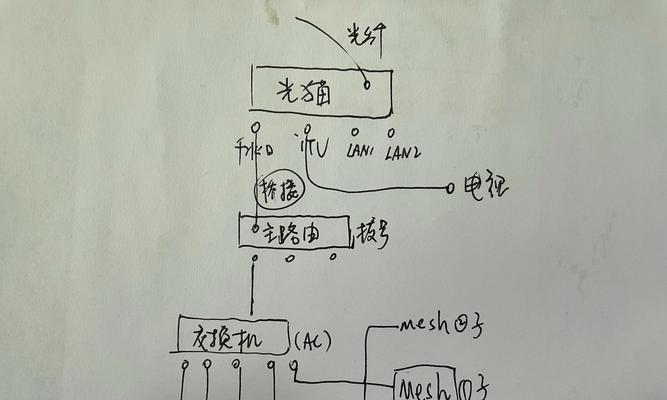 光纤
光猫
千兆口 iTV LAN1 LAN2
桥接
电视
主路由 拨号
交换机 (AC)
mesh①子
Mesh①子